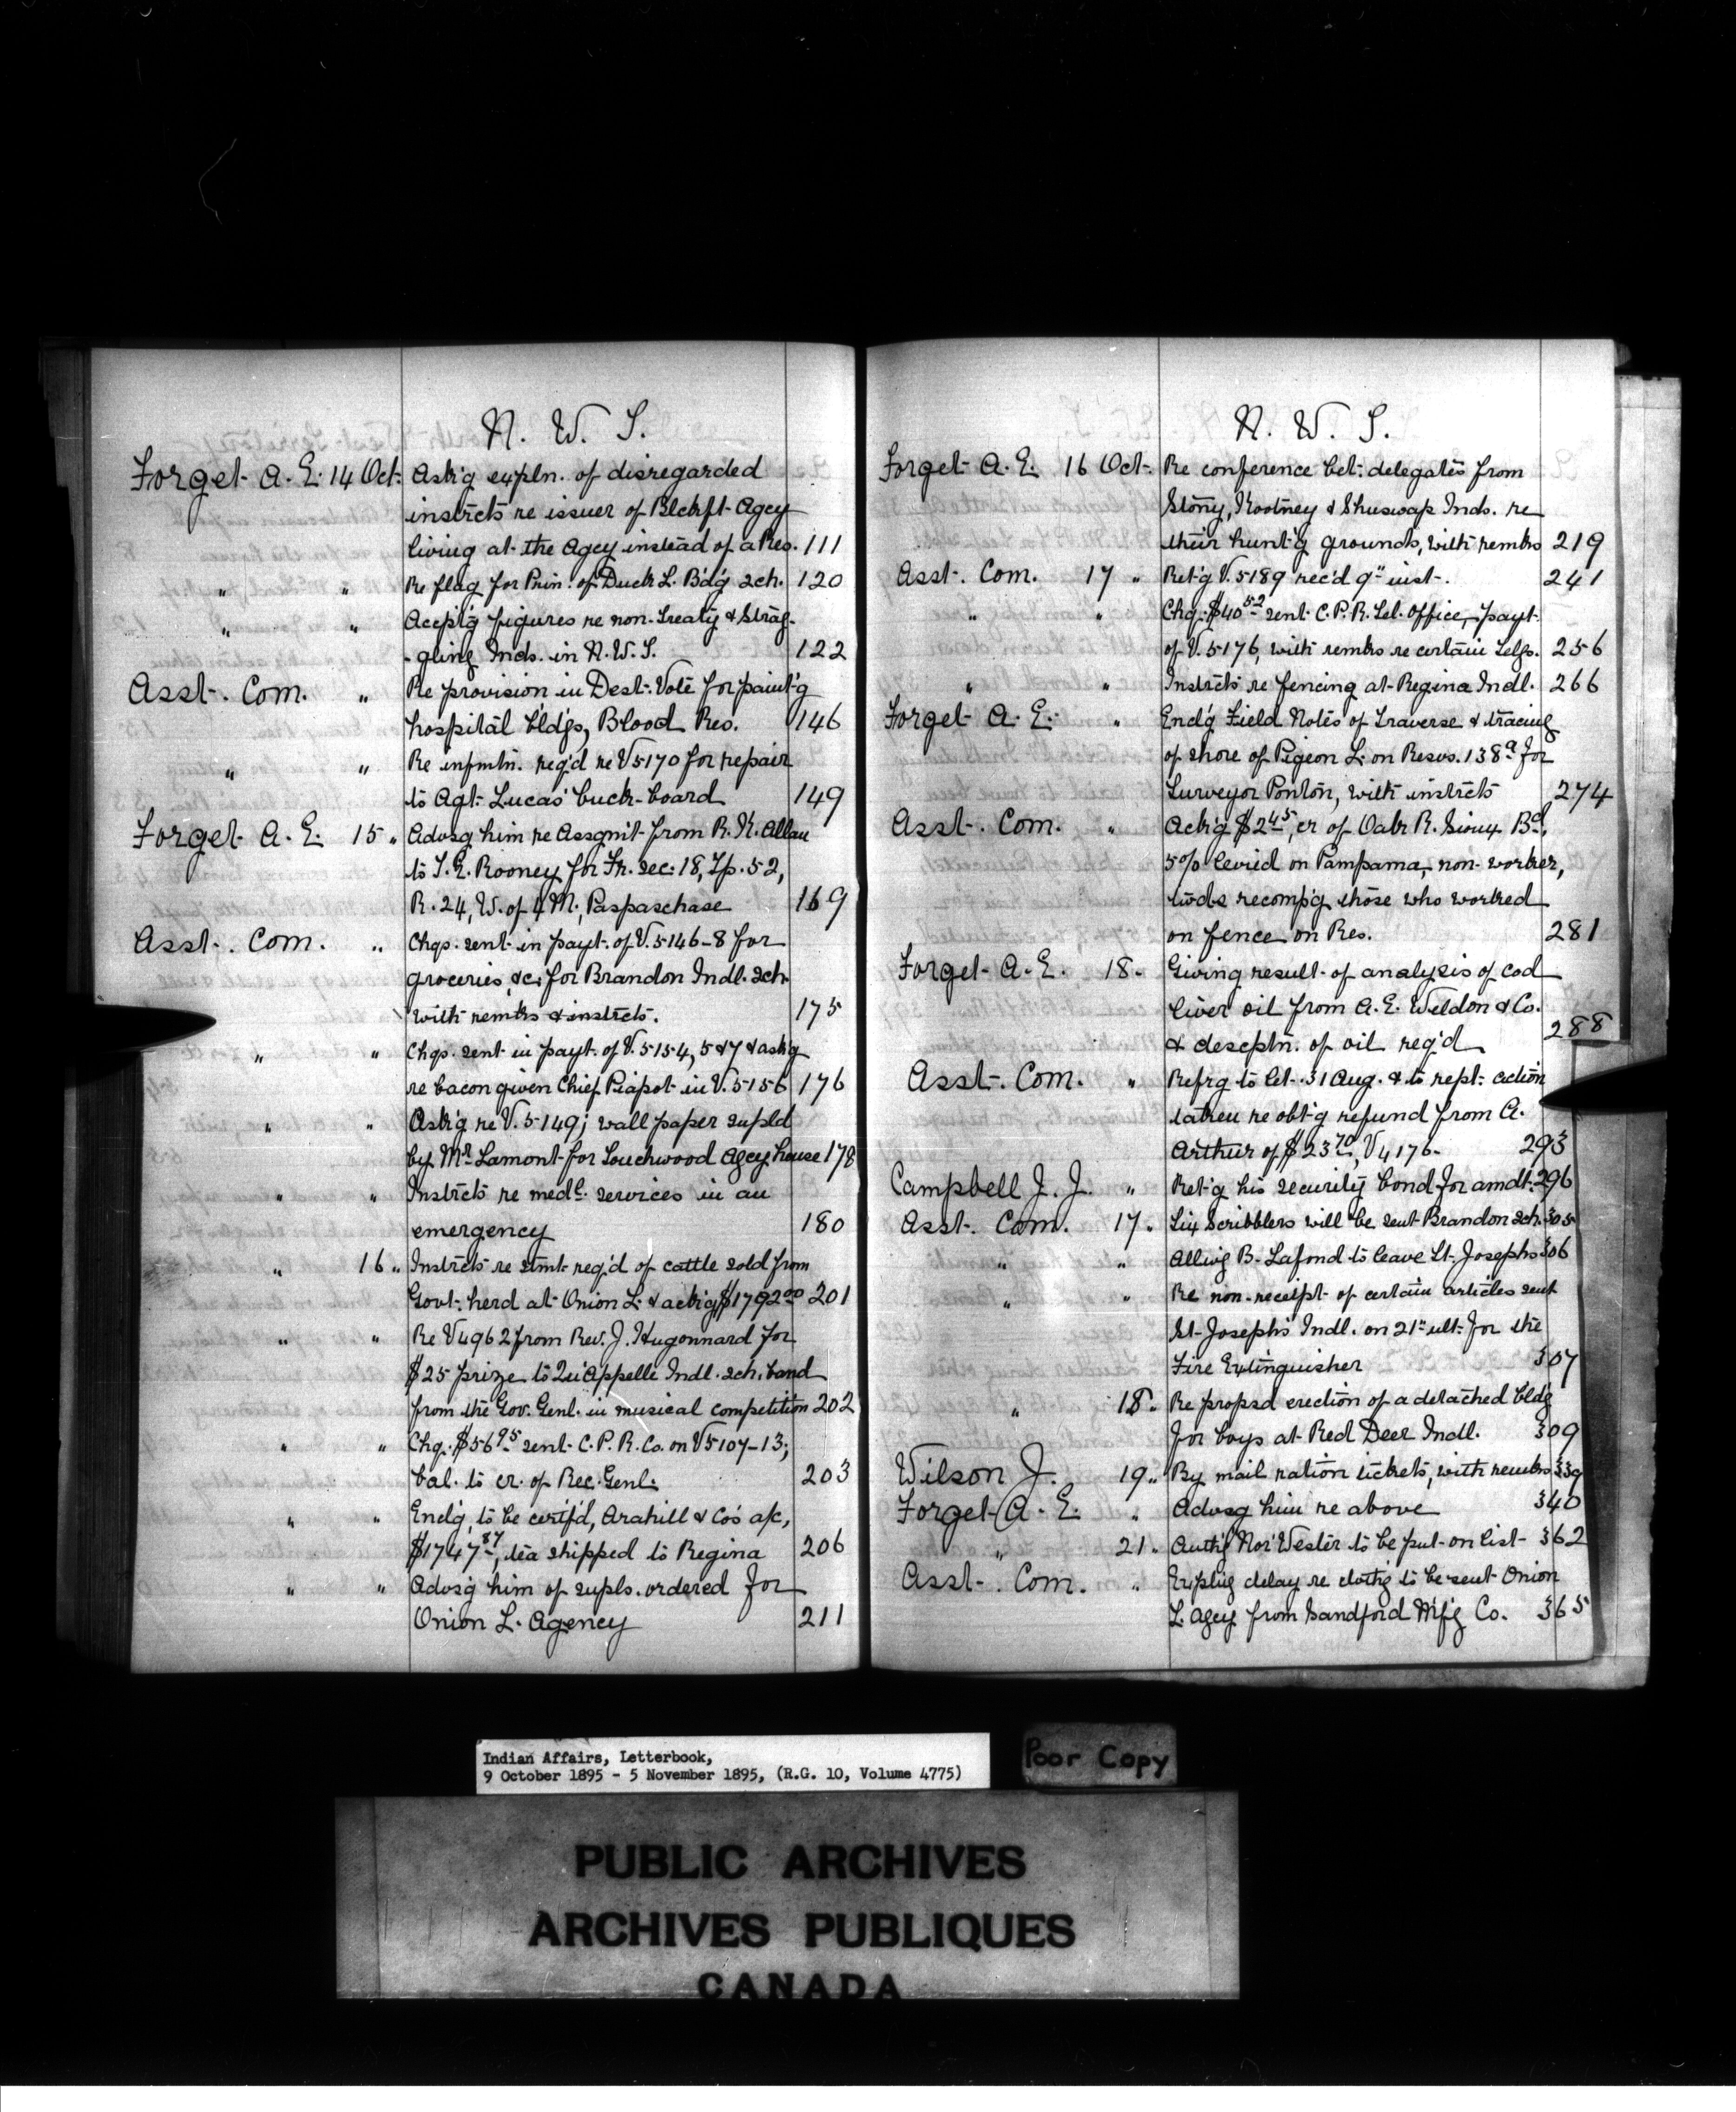 N. W. T.
Forget A. E. 14 Oct. Ask'g expln. of disregarded
instrcts re issuer of Blckft Agcy
living at the Agcy instead of a Res. 111
" " Re flag for Prin. of Duck L. Bd'g sch. 120
" " Acept'g figures re non-Treaty & Strag-
-gling Inds. in N.W.T. 122
Asst. Com. " Re provision in Dest. Vote for paint'g
hospital bldgs, Blood Res. 146
" " Re infmtn. req'd re V5170 for repair
to Agt. Lucas' buck-board 149
Forget A. E. 15 " Advsg him re Assgm't from R. K. Allan
to T. E. Rooney for Fr. Sec. 18, Tp. 52,
R. 24, W. of 4 M., Paspaschase 169
Asst. Com. " Chqs. sent in payt. of V. 5146-8 for
groceries &c. for Brandon Indl. sch.
with remks & instrcts. 175
" " Chqs. sent in payt. of V. 5154, 5 & 7 & ask'g
re bacon given Chief Piapot in V. 5156 176
" " Ask'g re V. 5149; wall paper supld
by Mr Lamont for Touchwood Agcy house 178
" " Instrcts re medl. services in an
emergency 180
" 16 " Instrcts re stmt req'd of cattle sold from
Govt. herd at Onion L. & ackg $1792.00 201
" " Re V4962 from Rev. J. Hugonnard for
$25 prize to Qu'Appelle Indl. sch. band
from the Gov. Genl. in musical competition 202
" " Chq. $56 95 sent C.P.R. Co. on V5107-13;
bal. to cr. of Rec. Genl. 203
" " Encl'g, to be certif'd, & Co's a/c,
$1747 87, tea shipped to Regina 206
" " Advsg him of supls. ordered for
Onion L. Agency 211
N. W. T.
Forget A. E. 16 Oct. Re conference bet. delegates from
Stony, Kootney & Shuswap Inds. re
their hunt'g grounds, with remks 219
Asst. Com. 17 " Ret'g V. 5189 rec'd 9" inst. 241
" " Chq. $40 52 sent C.P.R. Tel. Office, payt.
of V. 5176, with remks re certain Telgs. 256
" " Instrcts re fencing at Regina Indl. 266
Forget A. E. " Encl'g Field Notes of Traverse & tracing
of shore of Pigeon L. on Resvs. 138a for
Surveyor Ponton, with instrcts 274
Asst. Com. " Ack'g $2 45, cr of Oak R. Sioux Bd.
5% levied on Pampama, non-worker,
twds recomp'g those who worked
on fence on Res. 281
Forget A. E. 18 " Giving result of analysis of cod
liver oil from A. E. Weldon & Co.
& descptn. of oil req'd 288
Asst. Com. " Refrg to let. 31 Aug. & to rept. action
taken re obt'g refund from A.
Arthur of $23 70, V4176. 293
Campbell J. J. " Ret'g his security bond for amdt. 296
Asst. Com. 17 " Six Scribblers will be sent Brandon sch. 305
" " Allwg B. Lafond to leave St. Josephs 306
" " Re non-receipt of certain articles sent
St. Joseph's Indl. on 21" ult. for the
Fire Extinguisher 307
" 18 " Re propsd erection of a detached bldg
for boys at Red Deer Indl. 309
Wilson J. 19 " By mail ration tickets, with remks 339
Forget A. E. " Advsg him re above 340
" 21 " Auth'g Nor' Wester to be put on list 362
Asst. Com. " Explng delay re clothg to be sent Onion
L. Agcy from Sandford M'f'g Co. 365
Indian Affairs, Letterbook,
9 October 1895 - 5 November 1895, (R.G. 10, Volume 4775)
Poor Copy
PUBLIC ARCHIVES
ARCHIVES PUBLIQUES
CANADA